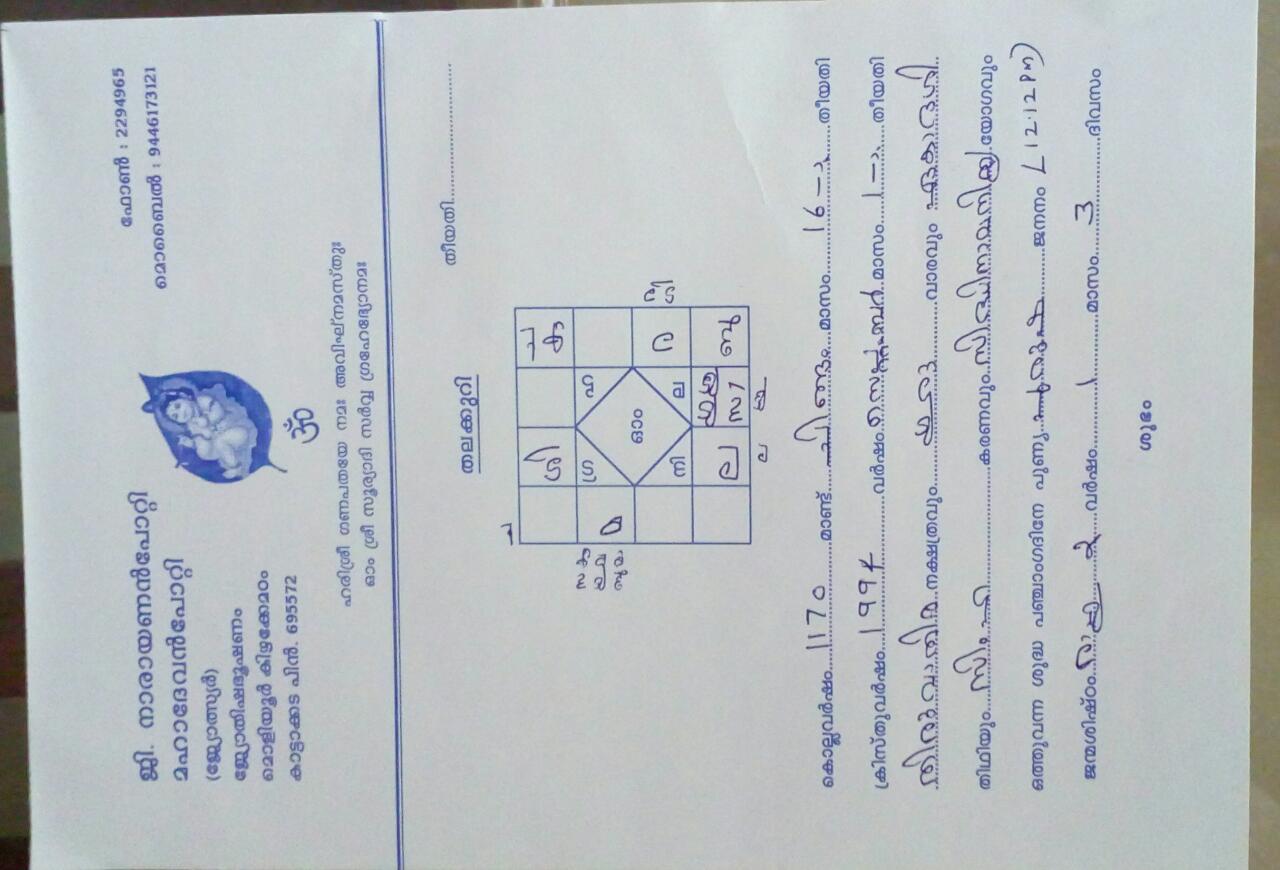 ജി. നാരായണൻപോറ്റി
മഹാദേവൻപോറ്റി
(ജ്യോത്സ്യർ)
ജ്യോതിഷഭൂഷണം
മൊളിയൂർ കിഴക്കേമഠം
കാട്ടാക്കട പിൻ. 695572
ഫോൺ : 2294965
മൊബൈൽ : 9446173121
ഹരിശ്രീ ഗണപതയേ നമഃ അവിഘ്നമസ്തുഃ
ഓം ശ്രീ സൂര്യാദി സർവ്വ ഗ്രഹേഭ്യോനമഃ
തിയതി
തലക്കുറി
ശി
ഗ്ര ഹ
മ ര
ഓം
നി ല
ല ബു
കൊല്ലവർഷം 1170 മാണ്ട് ചിങ്ങം മാസം 16 തീയതി
ക്രിസ്തുവർഷം 1994 വർഷം സെപ്റ്റംബർ മാസം 1 തീയതി
തിരുവാതിര നക്ഷത്രവും വാരവും ഏകാദശി
തിഥിയും സിംഹ കരണവും യോഗവും
ഒത്തുവന്ന ശുദ്ധ പഞ്ചാംഗദിനേ പൂണൂ ജനനം (12.12 PM)
ജന്മശിഷ്ഠം രാഹു വർഷം 1 മാസം 3 ദിവസം
ശുഭം